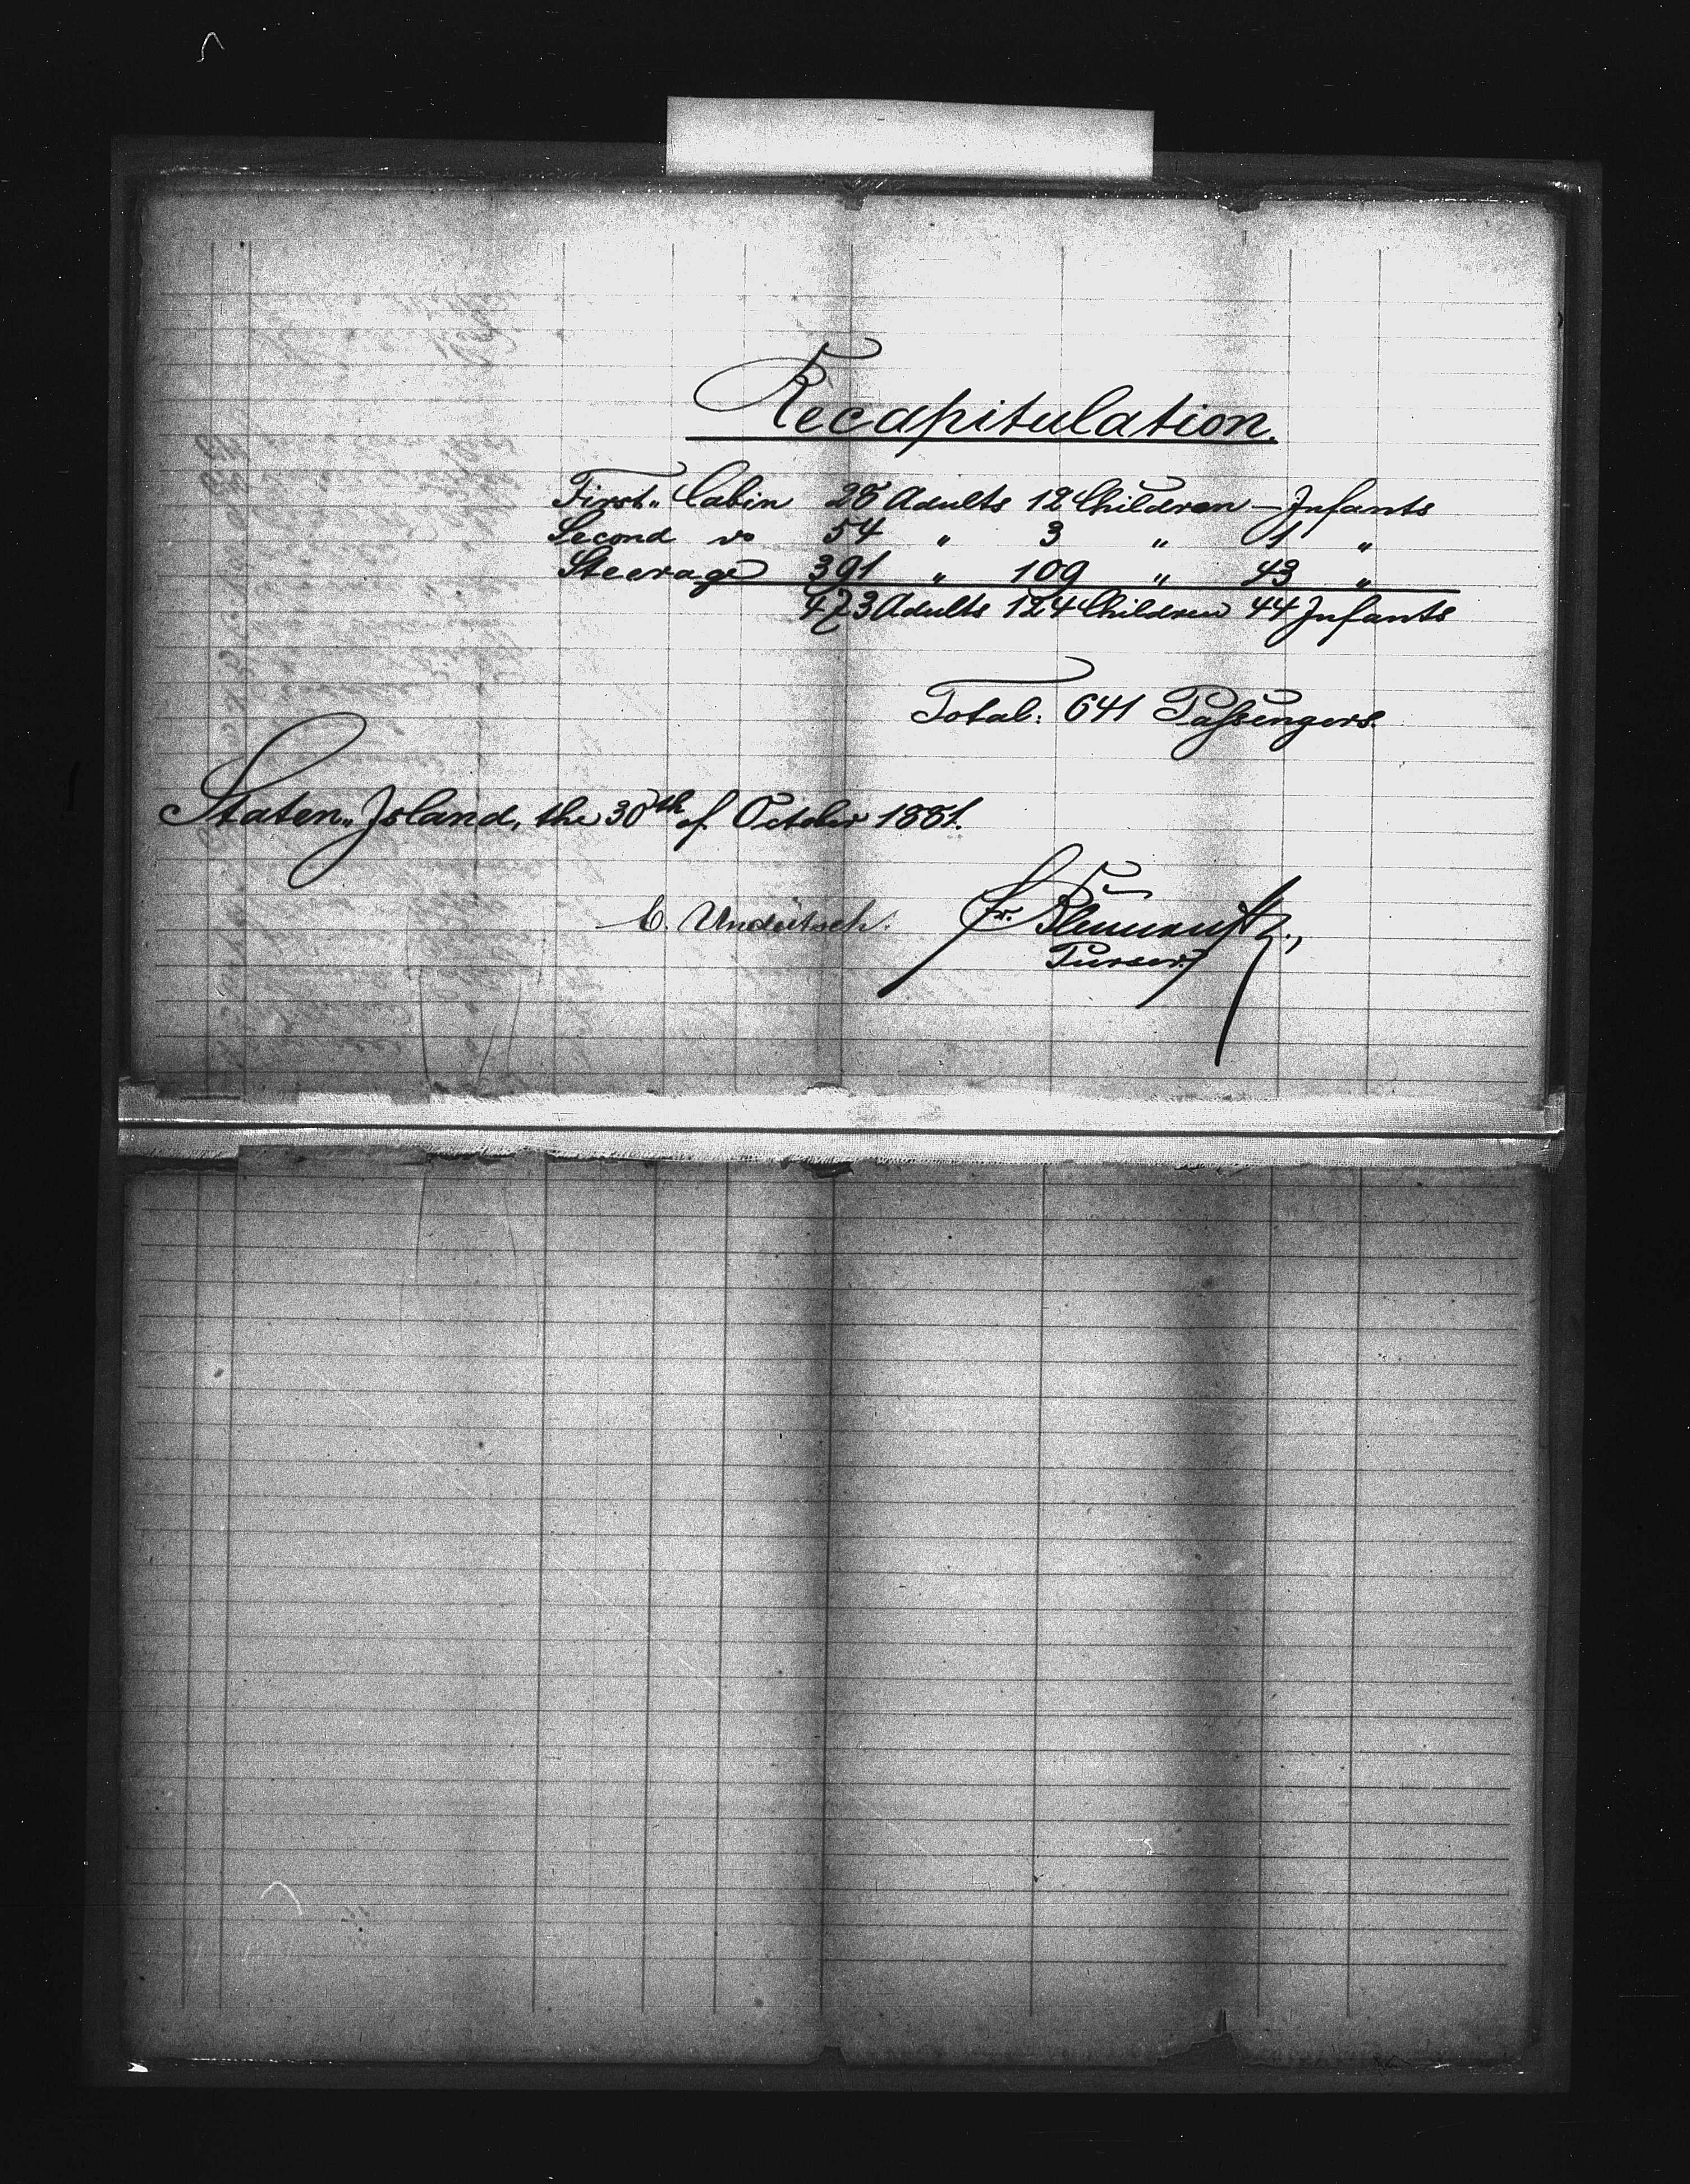 Recapitulation.
First„ Cabin 28 Adults 12 Children — Infants
Second do 54 „ 3 „ 1 „
Steerage 391 „ 109 „ 43 „
473 Adults 124 Children 44 Infants
Total: 641 Passengers.
Staten„ Island, the 30th of October 1881.
Undütsch. Fr.
Purser.